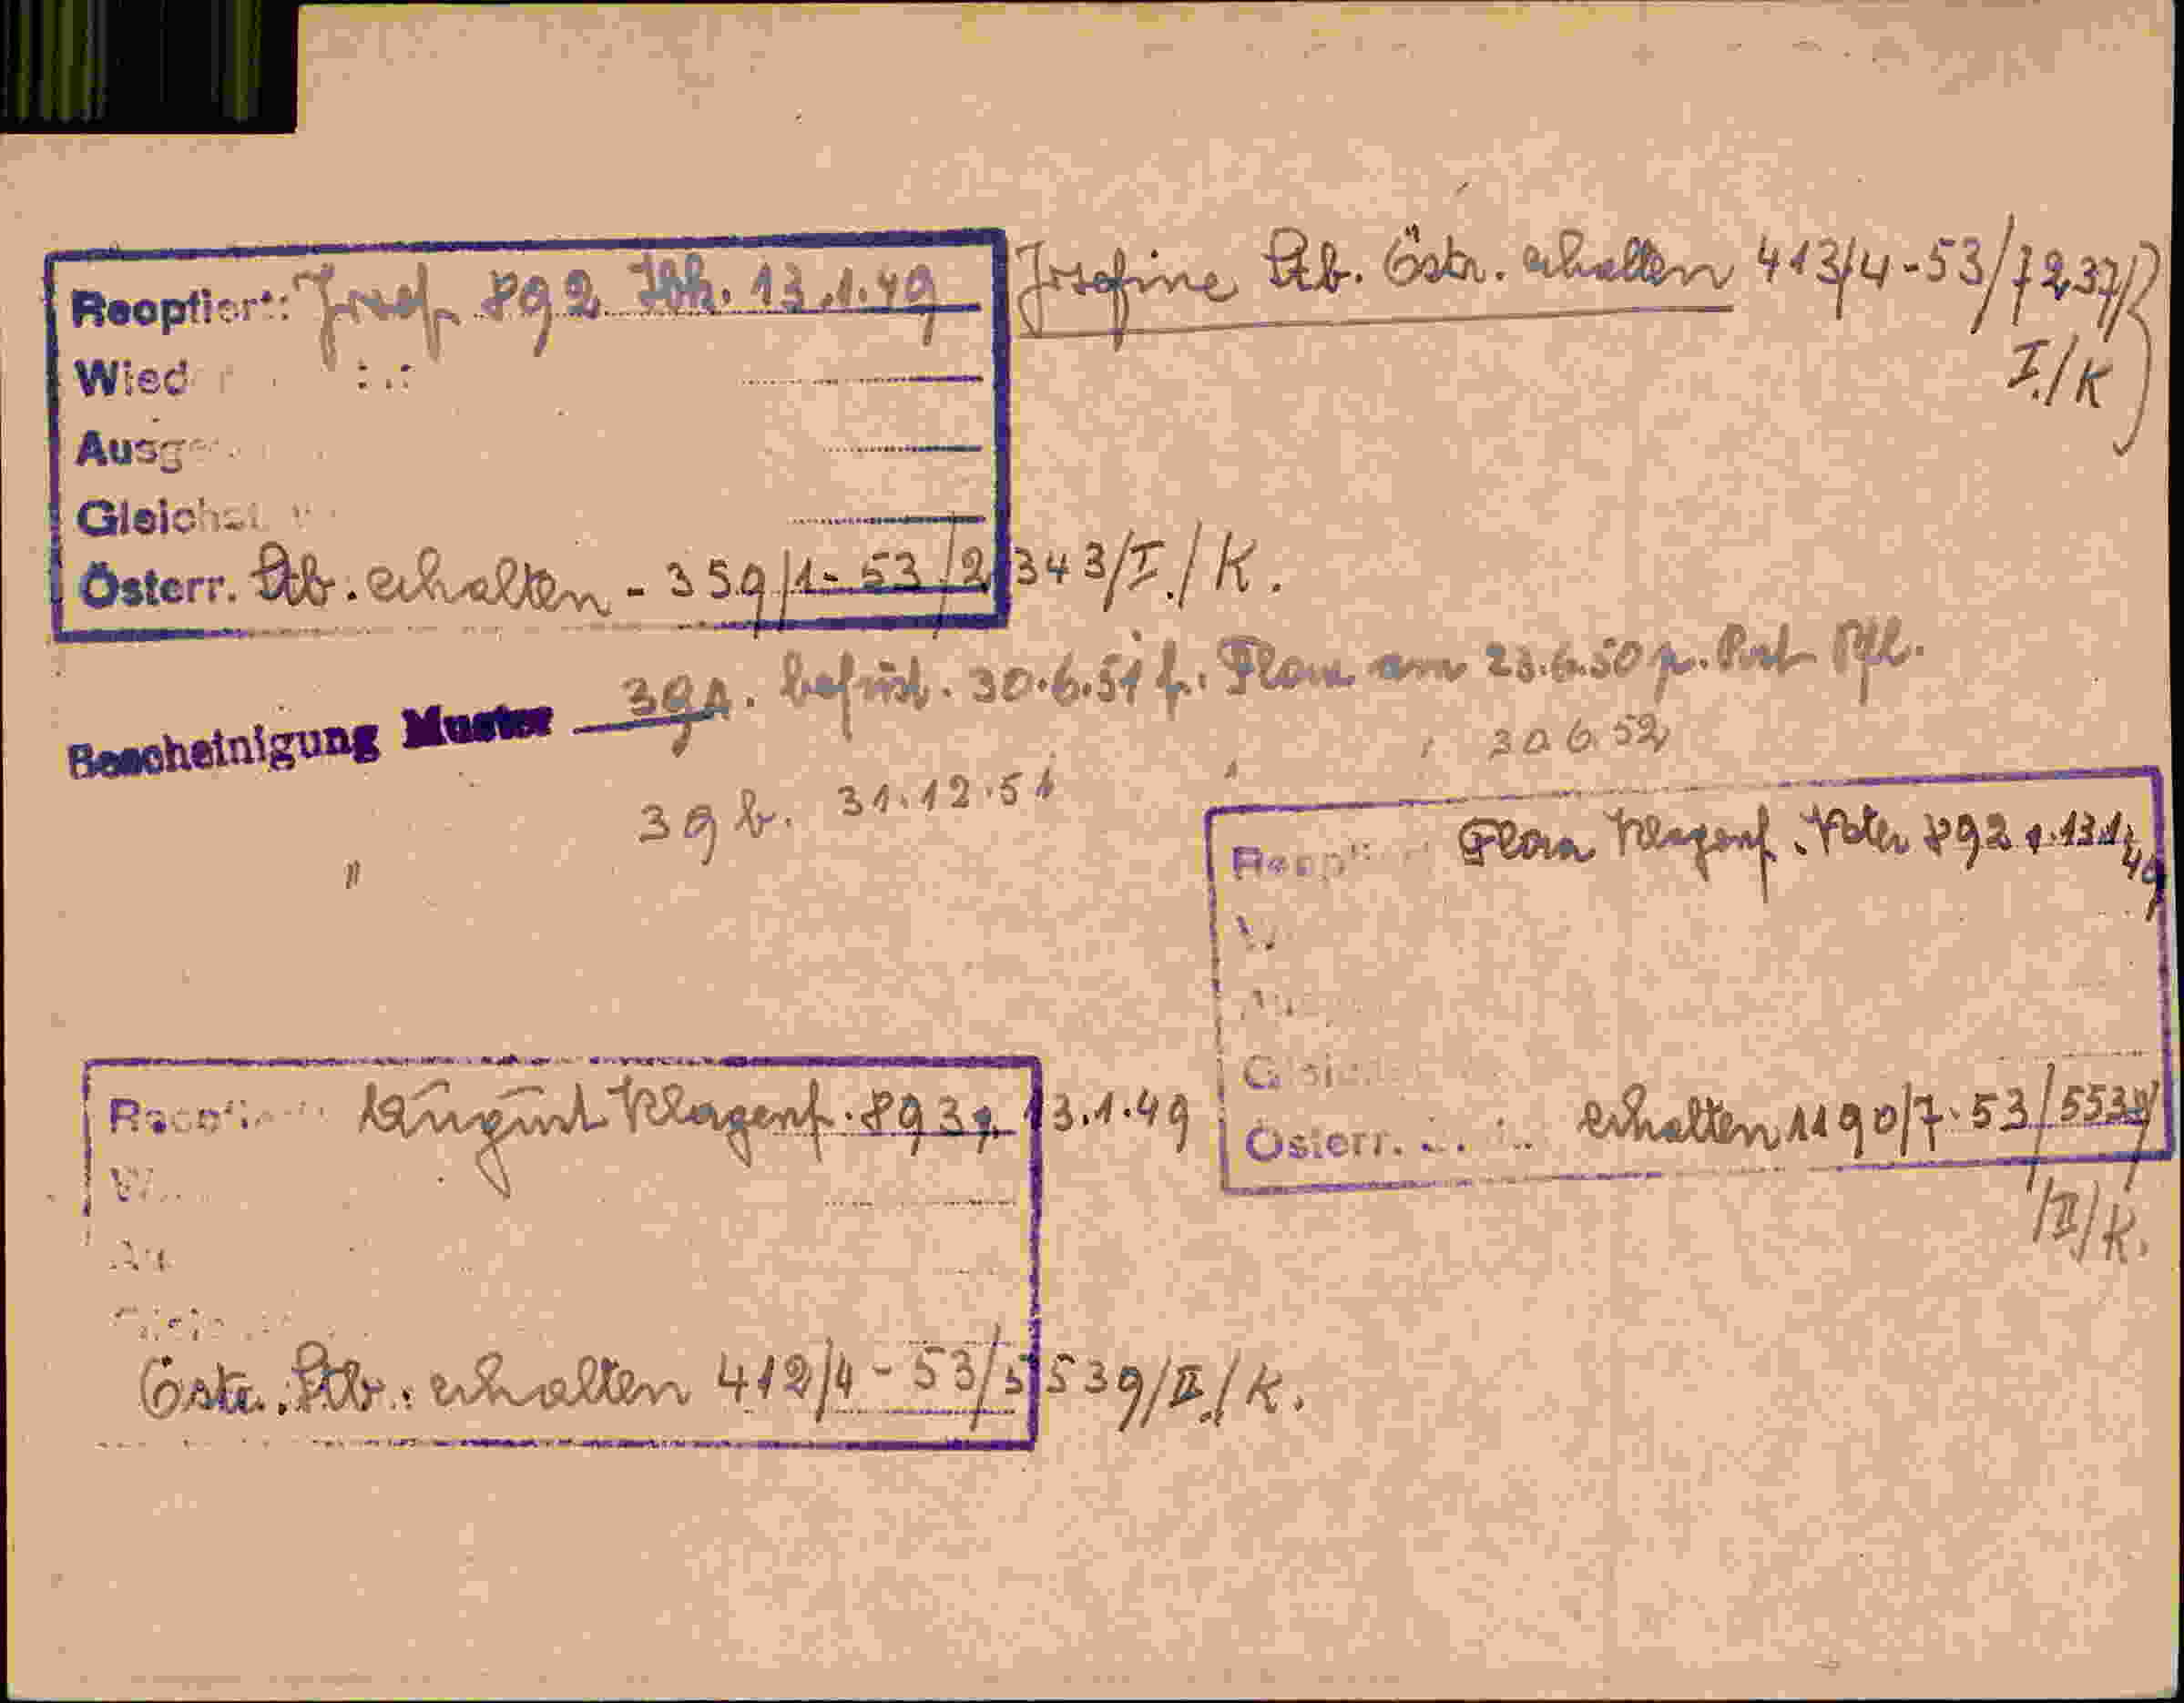 Reoptiert: Josef 892 Ibk. 13.1.49
Josefine Stb. Östr. erhalten 413/4-53/7237/
I./K
Wied
Ausge
Gleichst
Österr. Stb. erhalten - 359/1-53/2343/I./K.
Bescheinigung Muster 39A. befrist. 30.6.51 f. Flora am 23.6.50 p. Post
30.6.52
39 b. 31.12.51
"
Reopt Flora Klagenf. Vater 892 v. 13.1.49
Österr. erhalten 1190/7-53/5539/
/II/K.
Reoptiert August Klagenf. 893 v. 13.1.49
Östr. Stb. erhalten 412/4-53/5539/II./K.